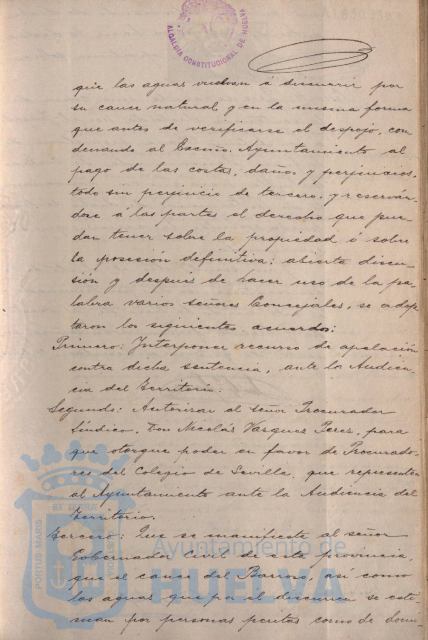 ALCALDIA CONSTITUCIONAL DE HUELVA
que las aguas vuelvan á discurrir por
su cauce natural y en la misma forma
que antes de verificarse el despojo, con
denando al Excmo. Ayuntamiento al
pago de las costas, daños y perjuicios,
todo sin perjuicio de tercero, y reserván
dose á las partes el derecho que pue
dan tener sobre la propiedad ó sobre
la posesión definitiva: abierta discu
sión y después de hacer uso de la pa
labra varios señores Concejales, se adop
taron los siguientes acuerdos:
Primero: Interponer recurso de apelación
contra dicha sentencia, ante la Audien
cia del Territorio.
Segundo: Autorizar al señor Procurador
Síndico, Don Nicolás Vazquez Perez, para
que otorgue poder en favor de Procurado
res del Colegio de Sevilla, que representen
al Ayuntamiento ante la Audiencia del
Territorio.
Tercero: Que se manifieste al señor
Gobernador civil de esta provincia,
que el cauce del Barrero, así como
las aguas que por él discurren se esti
man por personas peritas como de domi
PORTUS MARIS
Ayuntamiento de
HUELVA